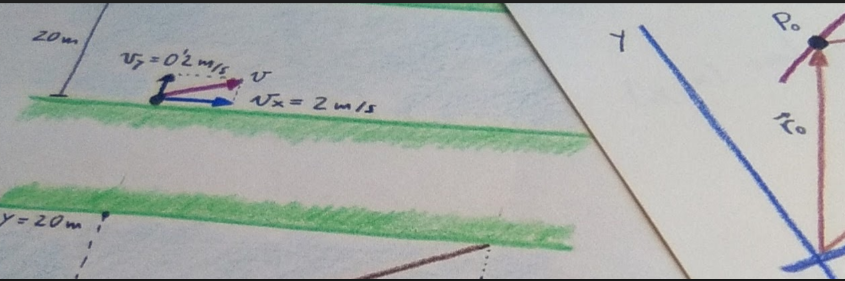 20m
vy = 0'2 m/s
v
vx = 2 m/s
y = 20m
Y
P₀
r₀